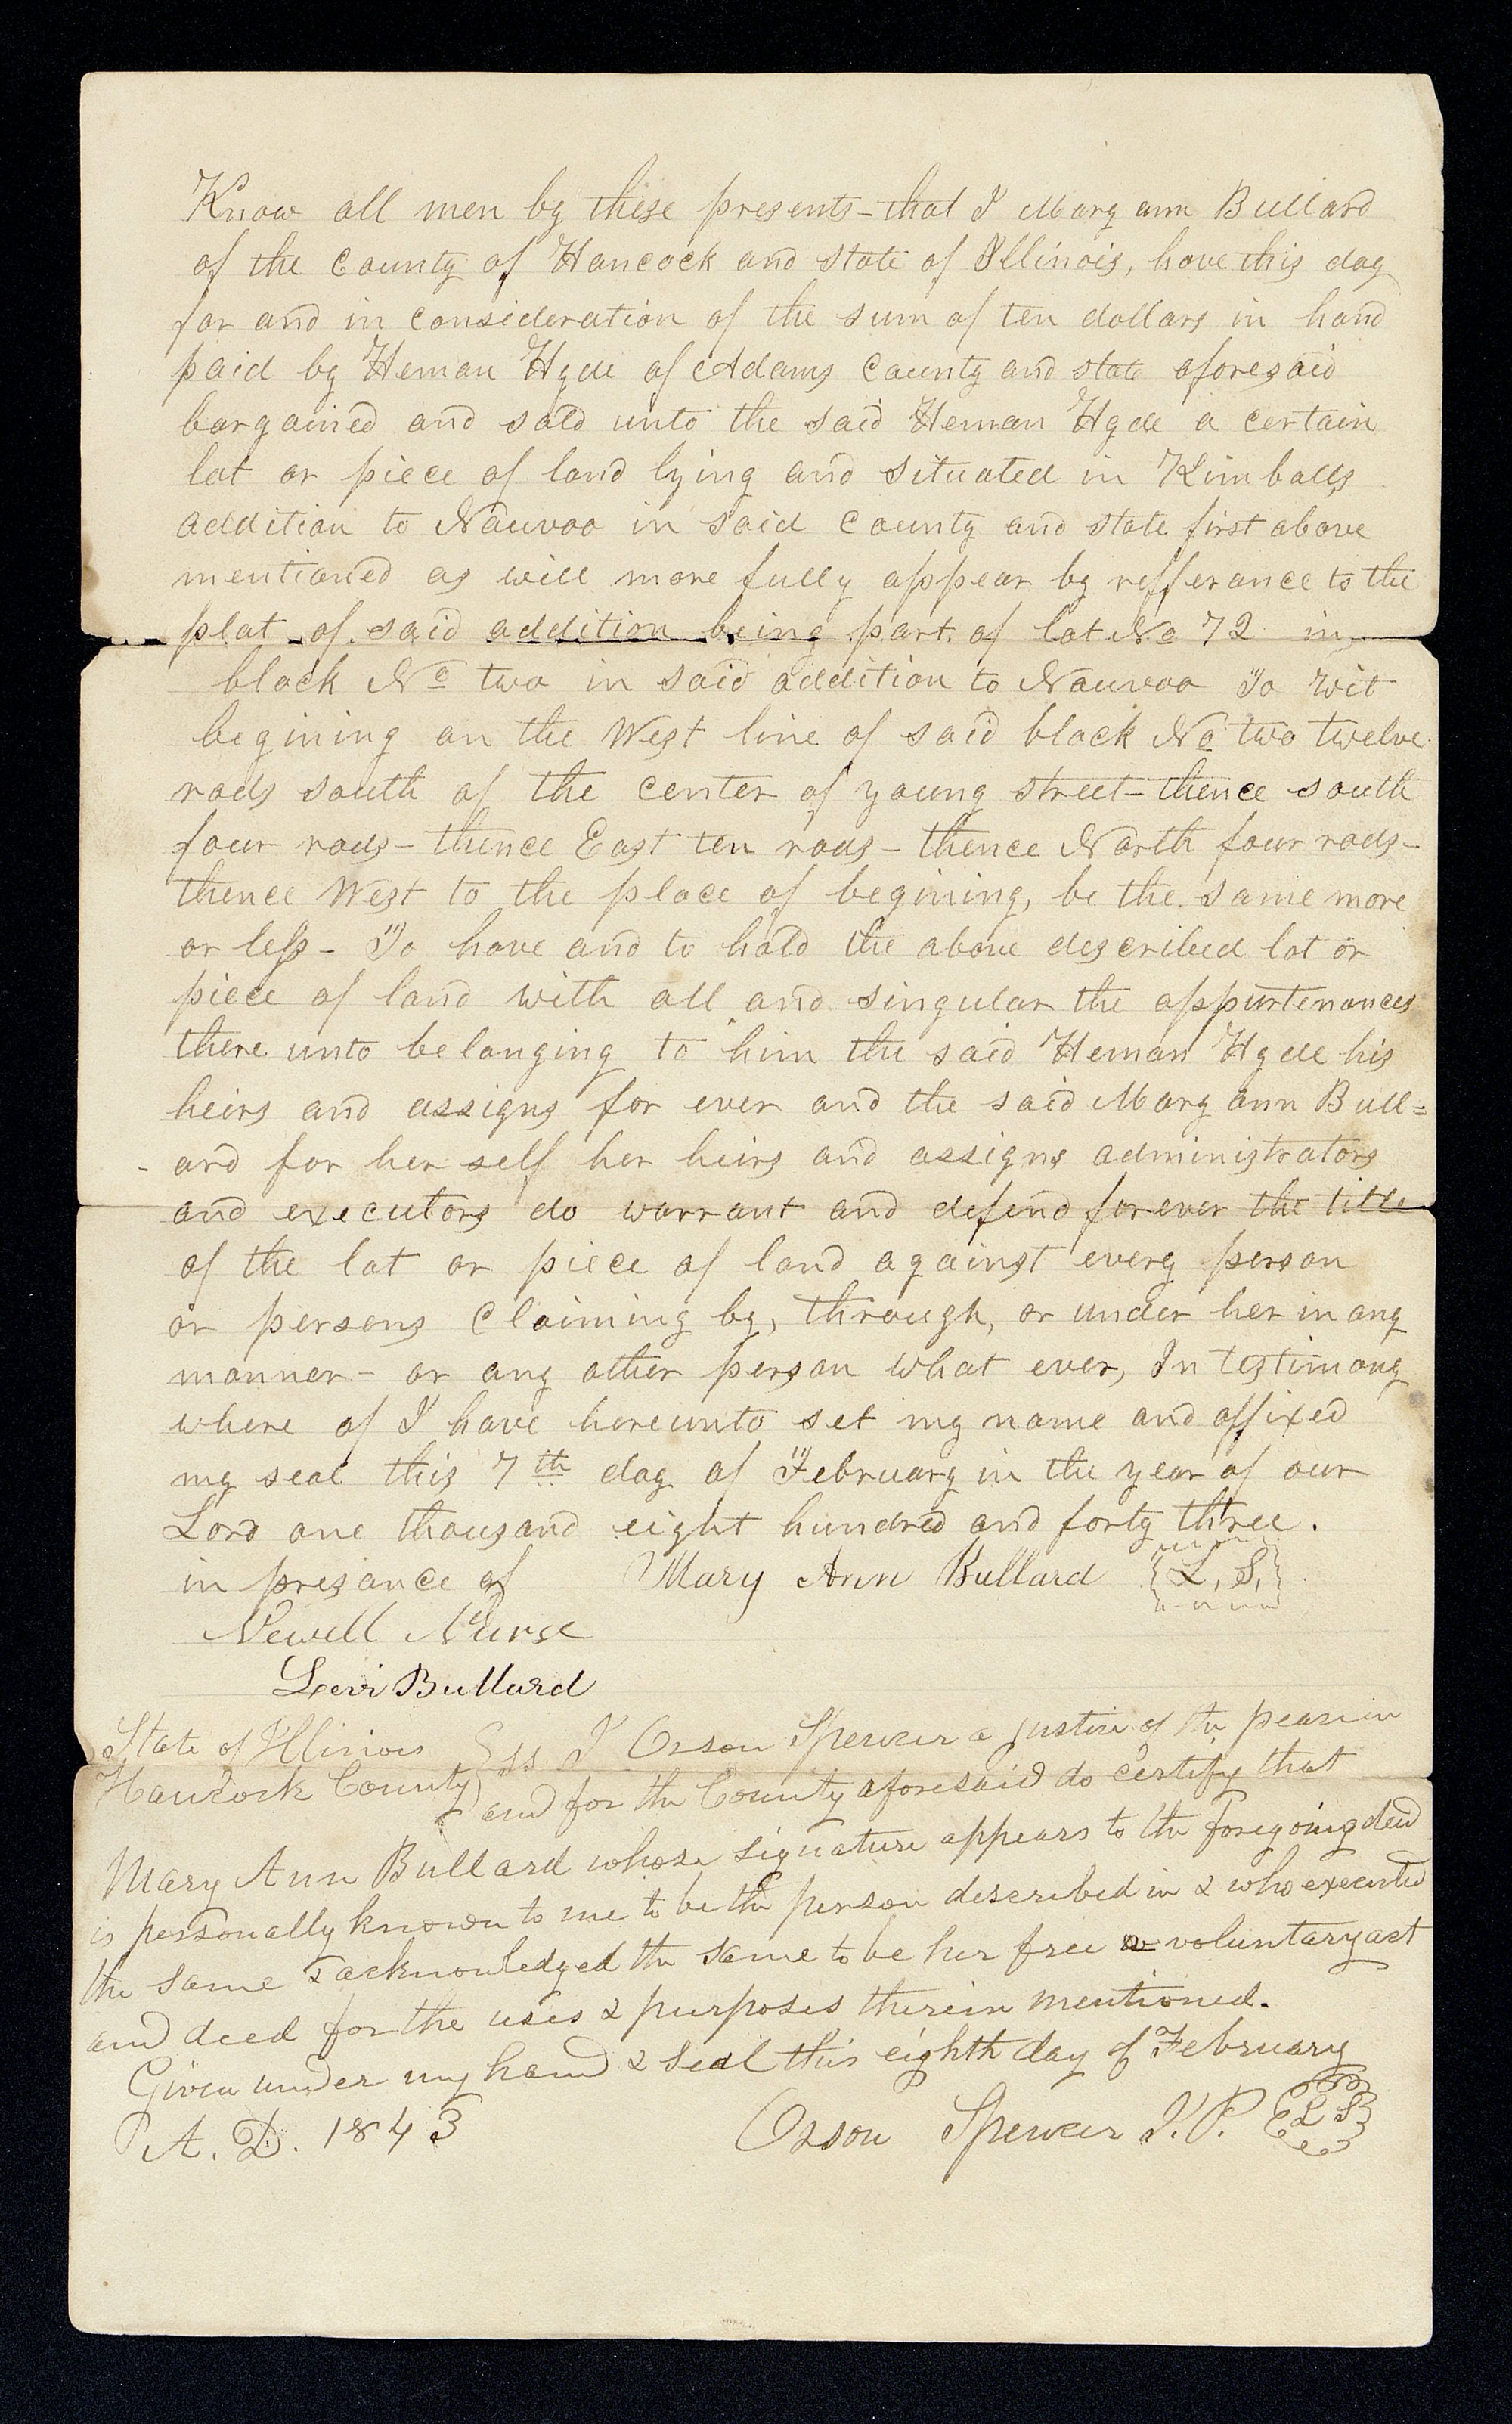 Know all men by these presents - that I Mary ann Bullard
of the County of Hancock and state of Illinois, have this day
for and in consideration of the sum of ten dollars in hand
paid by Heman Hyde of Adams County and state aforesaid
bargained and sold unto the said Heman Hyde a certain
lot or piece of land lying and situated in Kimballs
addition to Nauvoo in said County and state first above
mentioned as will more fully appear by refferance to the
plat of said addition being part of lot No 72 in
block No two in said addition to Nauvoo To wit
begining on the West line of said block No two twelve
rods south of the center of young street - thence south
four rods - thence East ten rods - thence North four rods -
thence West to the place of begining, be the same more
or less - To have and to hold the above described lot or
piece of land with all and singular the appurtenances
there unto belonging to him the said Heman Hyde his
heirs and assigns for ever and the said Mary ann Bull=
-ard for her self her heirs and assigns administrators
and executors do warrant and defend forever the title
of the lot or piece of land against every person
or persons Claiming by, through, or under her in any
manner - or any other person what ever, In testimony
where of I have hereunto set my name and affixed
my seal this 7th day of February in the year of our
Lord one thousand eight hundred and forty three.
in presance of Mary Ann Bullard {L, S,}
Newell Nurse
Levi Bullard
State of Illinois } ss I Orson Spencer a justice of the peace in
Hancock County } and for the County aforesaid do certify that
Mary Ann Bullard whose signature appears to the foregoing deed
is personally known to me to be the person described in & who executed
the same & acknowledged the same to be her free & voluntary act
and deed for the uses & purposes therein mentioned.
Given under my hand & seal this eighth day of February
A. D. 1843 Orson Spencer J. P. {L S}